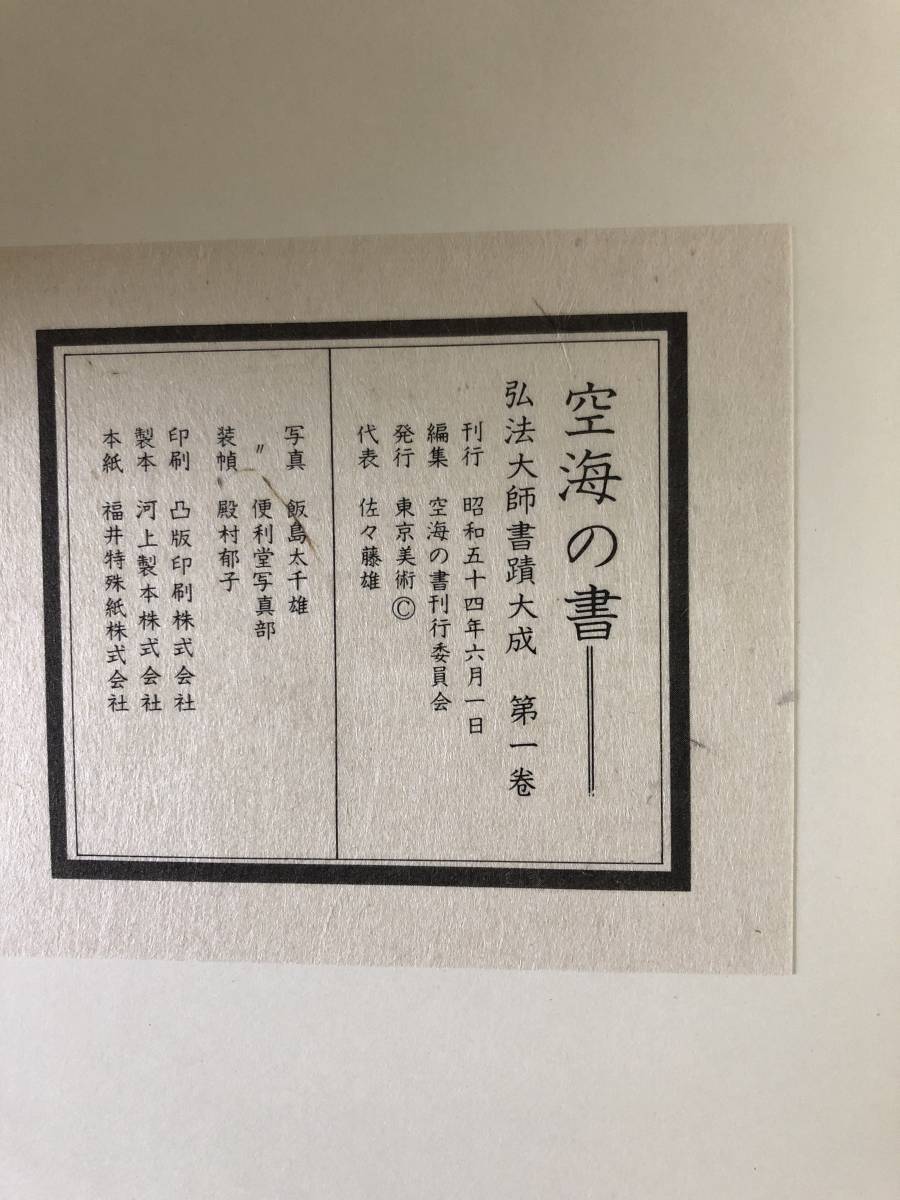 空海の書
弘法大師書蹟大成 第一巻
刊行 昭和五十四年六月一日
編集 空海の書刊行委員会
発行 東京美術Ⓒ
代表 佐々藤雄
写真 飯島太千雄
〃 便利堂写真部
装幀 殿村郁子
印刷 凸版印刷株式会社
製本 河上製本株式会社
本紙 福井特殊紙株式会社